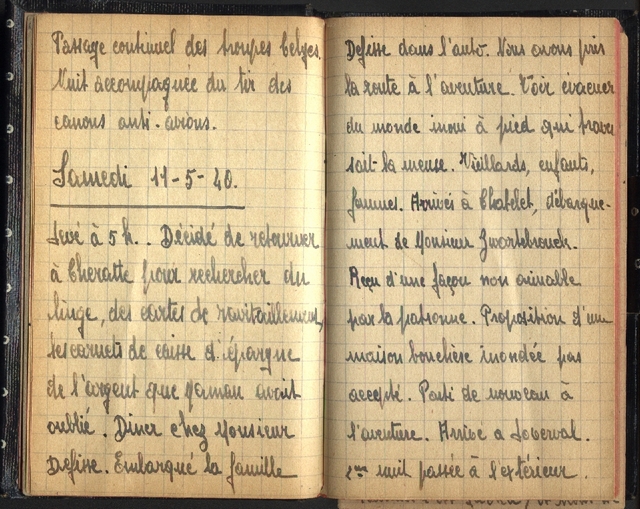 Passage continuel des troupes belges.
Nuit accompagnée du tir des
canons anti-avions.
Samedi 11-5-40.
Levé à 5 h.. Décidé de retourner
à Cheratte pour rechercher du
linge, des cartes de ravitaillement,
les carnets de caisse d'épargne
de l'argent que Maman avait
oublié. Diner chez Monsieur
Defize. Embarqué la famille
Defize dans l'auto. Nous avons pris
la route à l'aventure. Voir évacuer
du monde inoui à pied qui traver
sait la meuse. Vieillards, enfants,
femmes. Arrivés à Chatelet, débarque-
ment de Monsieur
Reçu d'une façon non aimable
par la patronne. Proposition d'une
maison bouchère inondée pas
accepté. Parti de nouveau à
l'aventure. Arrivé a Loverval.
2me nuit passée à l'extérieur.